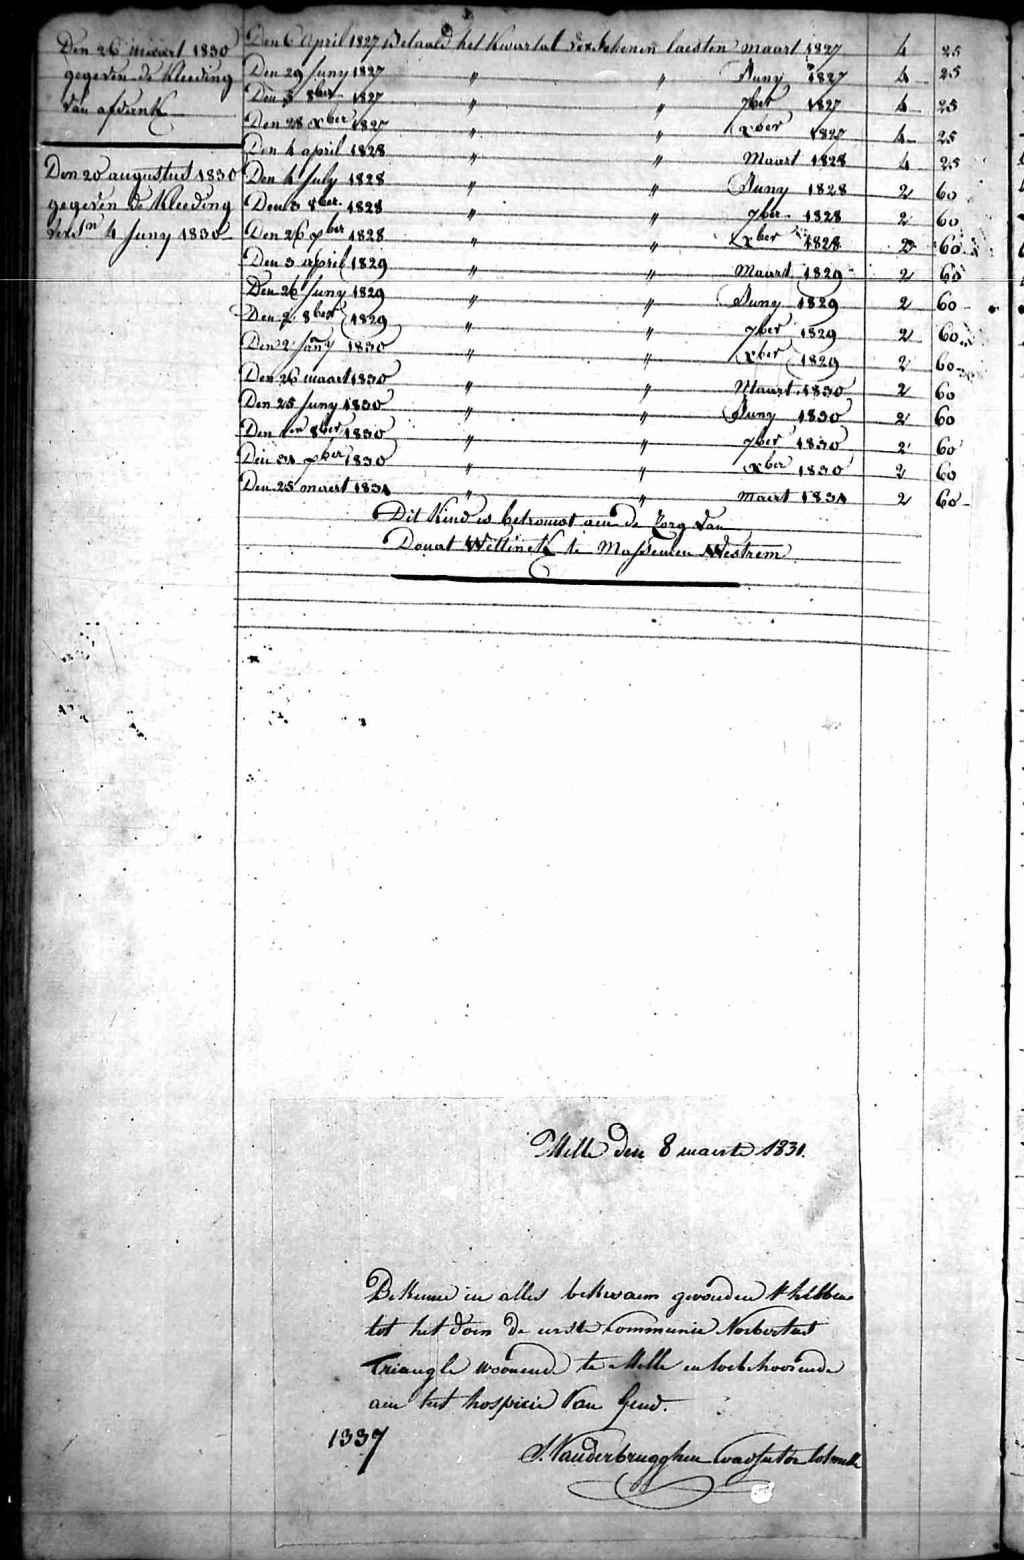 Den 26 maert 1830
gegeven de Kleeding
van afdrank
Den 20 augustus 1830
gegeven de Kleeding
4 Juny 1830
Den 6 April 1827 Betaald het Kwartal verschenen laesten maart 1827 4 25
Den 29 Juny 1827 " " Juny 1827 4 25
Den 3 8ber 1827 " " 7ber 1827 4 25
Den 28 xber 1827 " " xber 1827 4 25
Den 4 april 1828 " " Maart 1828 4 25
Den 4 July 1828 " " Juny 1828 2 60
Den 3 8ber 1828 " " 7ber 1828 2 60
Den 26 xber 1828 " " xber 1828 2 60
Den 3 april 1829 " " Maart 1829 2 60
Den 26 Juny 1829 " " Juny 1829 2 60
Den 2 8ber 1829 " " 7ber 1829 2 60
Den 2 Jany 1830 " " xber 1829 2 60
Den 26 maart 1830 " " Maart 1830 2 60
Den 25 Juny 1830 " " Juny 1830 2 60
Den 1en 8ber 1830 " " 7ber 1830 2 60
Den 31 xber 1830 " " xber 1830 2 60
Den 25 maert 1831 " " maert 1831 2 60
Dit Kind is betrouwt aen de Zorg van
Donat Wittinck te Massemen Westrem
Melle den 8 maerte 1831.
Bekenne in alles bekwaem gevonden t'hebben
tot het doen de eerste Communie Norbertus
Triangle woonende te Melle en toebehoorende
aen het hospicie van Gend.
1337
J. Vanderbrugghen Coadjutor tot melle